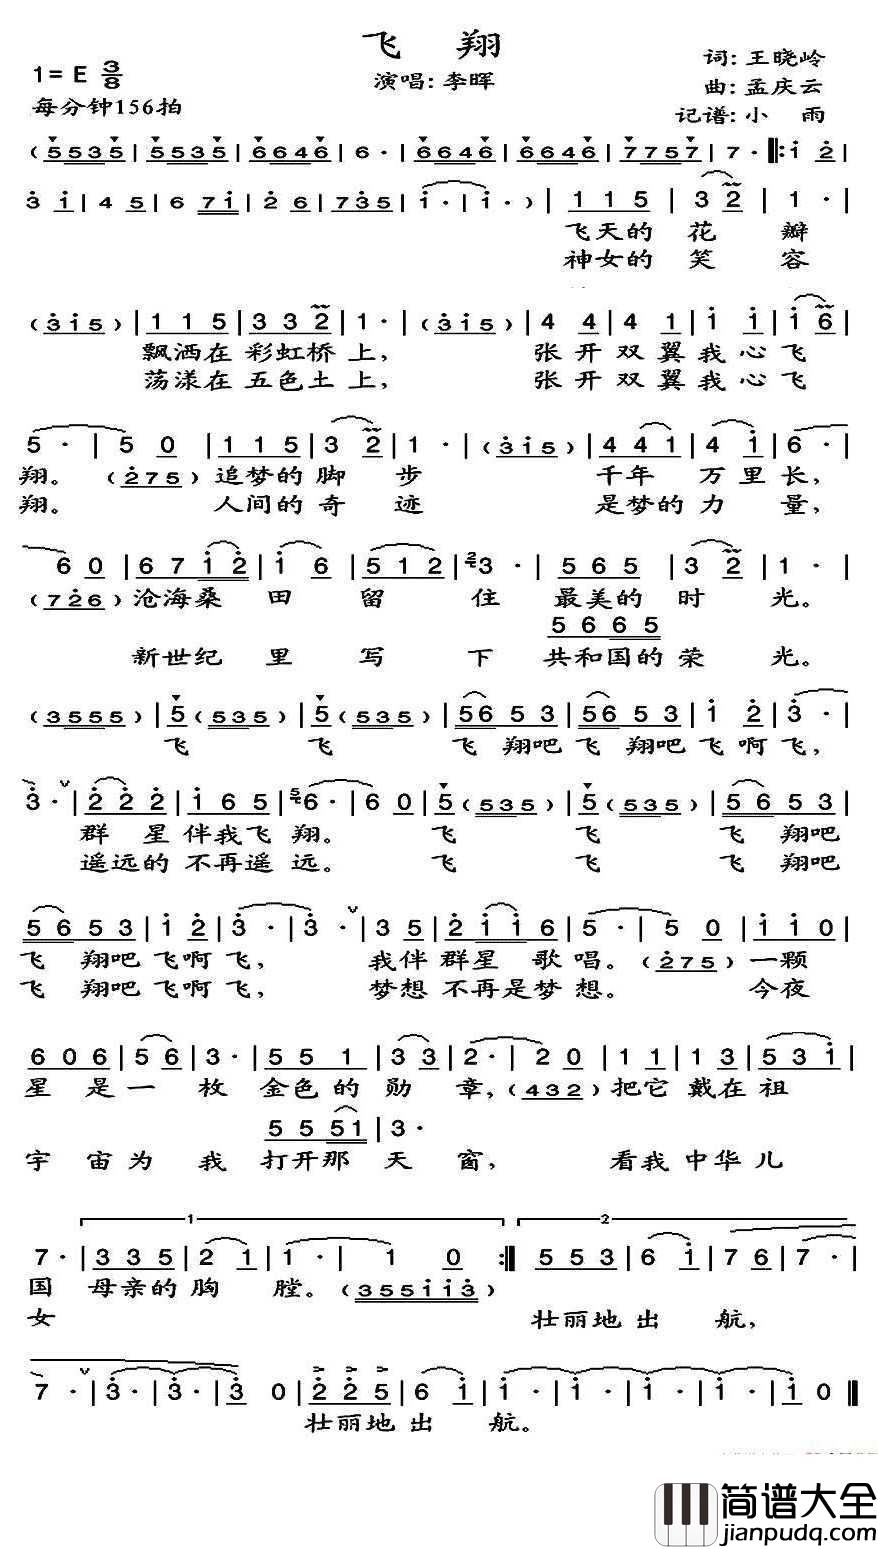 飞 翔
1= E 3/8
词: 王晓岭
演唱: 李晖
曲: 孟庆云
每分钟156拍
记谱: 小 雨
( 5535 | 5535 | 6646 | 6 · | 6646 | 6646 | 7757 | 7 · |: 1 2 |
3 1 | 4 5 | 6 7 1 | 2 6 | 7 3 5 | 1 · | 1 · ) | 1 1 5 | 3 2 | 1 · |
飞天的 花 瓣
神女的 笑 容
( 3 1 5 ) | 1 1 5 | 3 3 2 | 1 · | ( 3 1 5 ) | 4 4 | 4 1 | 1 1 | 1 6 |
飘洒在 彩虹桥 上, 张 开 双 翼 我 心 飞
荡漾在 五色土 上, 张 开 双 翼 我 心 飞
5 · | 5 0 | 1 1 5 | 3 2 | 1 · | ( 3 1 5 ) | 4 4 1 | 4 1 | 6 · |
翔。 ( 2 7 5 ) 追梦的 脚 步 千年 万 里 长,
翔。 人间的 奇 迹 是梦的 力 量,
6 0 | 6 7 1 2 | 1 6 | 5 1 2 | 2 3 · | 5 6 5 | 3 2 | 1 · |
( 7 2 6 ) 沧海桑 田 留 住 最美的 时 光。
5 6 6 5
新世纪 里 写 下 共和国的 荣 光。
( 3 5 5 5 ) | 5 ( 5 3 5 ) | 5 ( 5 3 5 ) | 5 6 5 3 | 5 6 5 3 | 1 2 | 3 · |
飞 飞 飞 翔吧 飞 翔吧 飞 啊 飞,
3 · | 2 2 2 | 1 6 5 | 5 6 · | 6 0 | 5 ( 5 3 5 ) | 5 ( 5 3 5 ) | 5 6 5 3 |
群 星 伴我飞 翔。 飞 飞 飞 翔吧
遥远的 不再遥 远。 飞 飞 飞 翔吧
5 6 5 3 | 1 2 | 3 · | 3 · | 3 5 | 2 1 1 6 | 5 · | 5 0 | 1 1 0 |
飞 翔吧 飞啊 飞, 我伴 群星 歌 唱。 ( 2 7 5 ) 一颗
飞 翔吧 飞啊 飞, 梦想 不再是梦 想。 今夜
6 0 6 | 5 6 | 3 · | 5 5 1 | 3 3 | 2 · | 2 0 | 1 1 | 1 3 | 5 3 1 |
星 是 一 枚 金色 的 勋 章, ( 4 3 2 ) 把它 戴在 祖
5 5 5 1 | 3 ·
宇 宙 为 我 打开那 天 窗, 看我 中华 儿
1 2
7 · | 3 3 5 | 2 1 | 1 · | 1 0 :| 5 5 3 | 6 1 | 7 6 | 7 · |
国 母亲的 胸 膛。 ( 3 5 5 1 1 3 )
女 壮丽地 出 航,
7 · | 3 · | 3 · | 3 0 | 2 2 5 | 6 1 | 1 · | 1 · | 1 · | 1 0 ||
壮丽地 出 航。
简谱大全
jianpudq.com